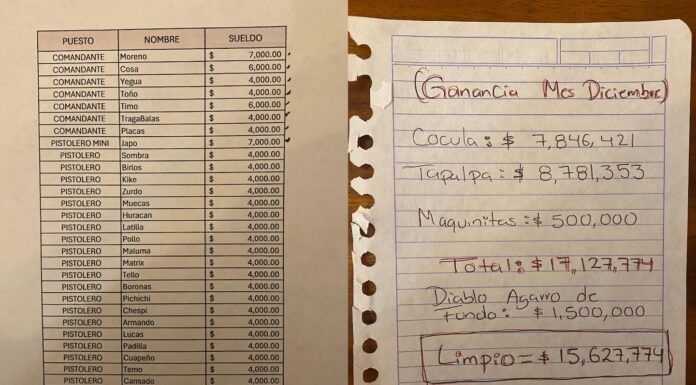 PUESTO NOMBRE SUELDO
COMANDANTE Moreno $ 7,000.00
COMANDANTE Cosa $ 6,000.00
COMANDANTE Yegua $ 4,000.00
COMANDANTE Toño $ 4,000.00
COMANDANTE Timo $ 6,000.00
COMANDANTE TragaBalas $ 4,000.00
COMANDANTE Placas $ 4,000.00
PISTOLERO MINI Japo $ 7,000.00
PISTOLERO Sombra $ 4,000.00
PISTOLERO Birlos $ 4,000.00
PISTOLERO Kike $ 4,000.00
PISTOLERO Zurdo $ 4,000.00
PISTOLERO Muecas $ 4,000.00
PISTOLERO Huracan $ 4,000.00
PISTOLERO Latilla $ 4,000.00
PISTOLERO Pollo $ 4,000.00
PISTOLERO Maluma $ 4,000.00
PISTOLERO Matrix $ 4,000.00
PISTOLERO Tello $ 4,000.00
PISTOLERO Boronas $ 4,000.00
PISTOLERO Pichichi $ 4,000.00
PISTOLERO Chespi $ 4,000.00
PISTOLERO Armando $ 4,000.00
PISTOLERO Lucas $ 4,000.00
PISTOLERO Padilla $ 4,000.00
PISTOLERO Cuapeño $ 4,000.00
PISTOLERO Temo $ 4,000.00
PISTOLERO Cansado $ 4,000.00
(Ganancia Mes Diciembre)
Cocula: $ 7,846,421
Tapalpa: $ 8,781,353
Maquinitas: $ 500,000
Total: $ 17,127,774
Diablo Agarro de
fondo: $ 1,500,000
Limpio = $ 15,627,774